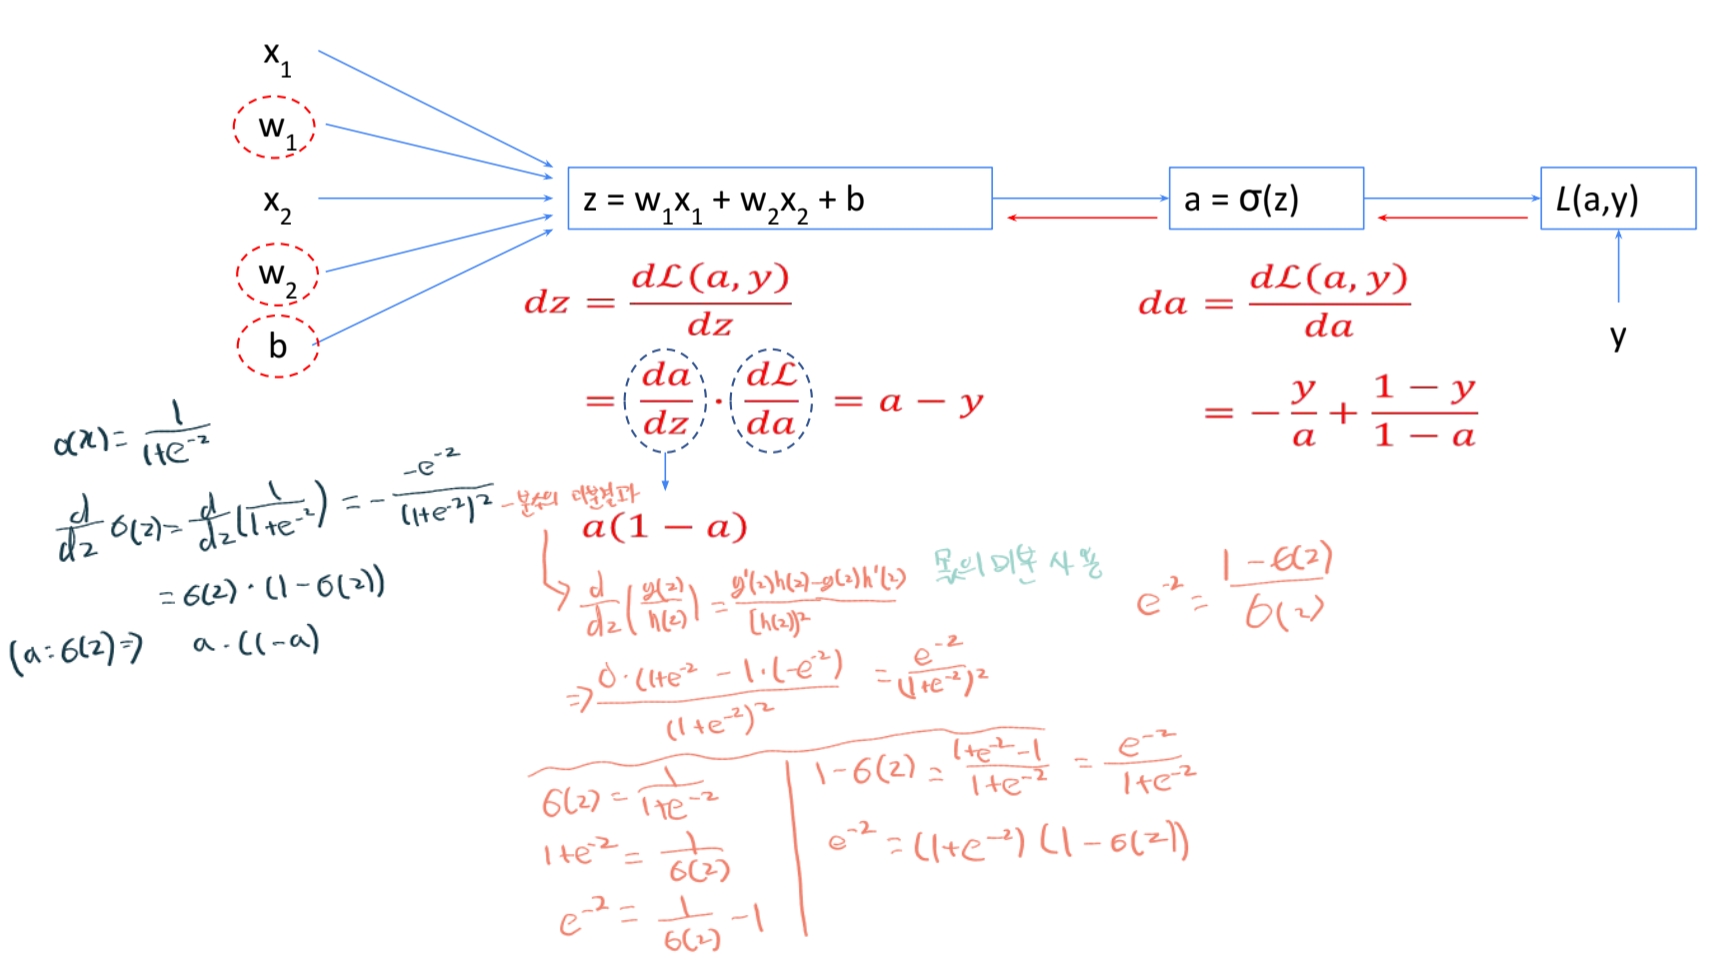 x₁
w₁
x₂
w₂
b
z = w₁x₁ + w₂x₂ + b
a = σ(z)
L(a,y)
y
dz = dℒ(a, y)/dz
= da/dz · dℒ/da = a − y
a(1 − a)
da = dℒ(a, y)/da
= − y/a + (1 − y)/(1 − a)
σ(x) = 1/(1+e^-z)
d/dz σ(z) = d/dz (1/(1+e^-z)) = - -e^-z/(1+e^-z)² - 분수의 미분결과
= σ(z) · (1 - σ(z))
(a = σ(z) ⇒) a · (1-a)
d/dz (g(z)/h(z)) = g'(z)h(z) - g(z)h'(z)/[h(z)]²
몫의 미분 사용
⇒ 0·(1+e^-z - 1·(-e^-z)/(1+e^-z)² = e^-z/(1+e^-z)²
e^-z = 1 - σ(z)/σ(z)
σ(z) = 1/(1+e^-z)
1+e^-z = 1/σ(z)
e^-z = 1/σ(z) - 1
1 - σ(z) = (1+e^-z - 1)/(1+e^-z) = e^-z/(1+e^-z)
e^-z = (1+e^-z) (1 - σ(z))